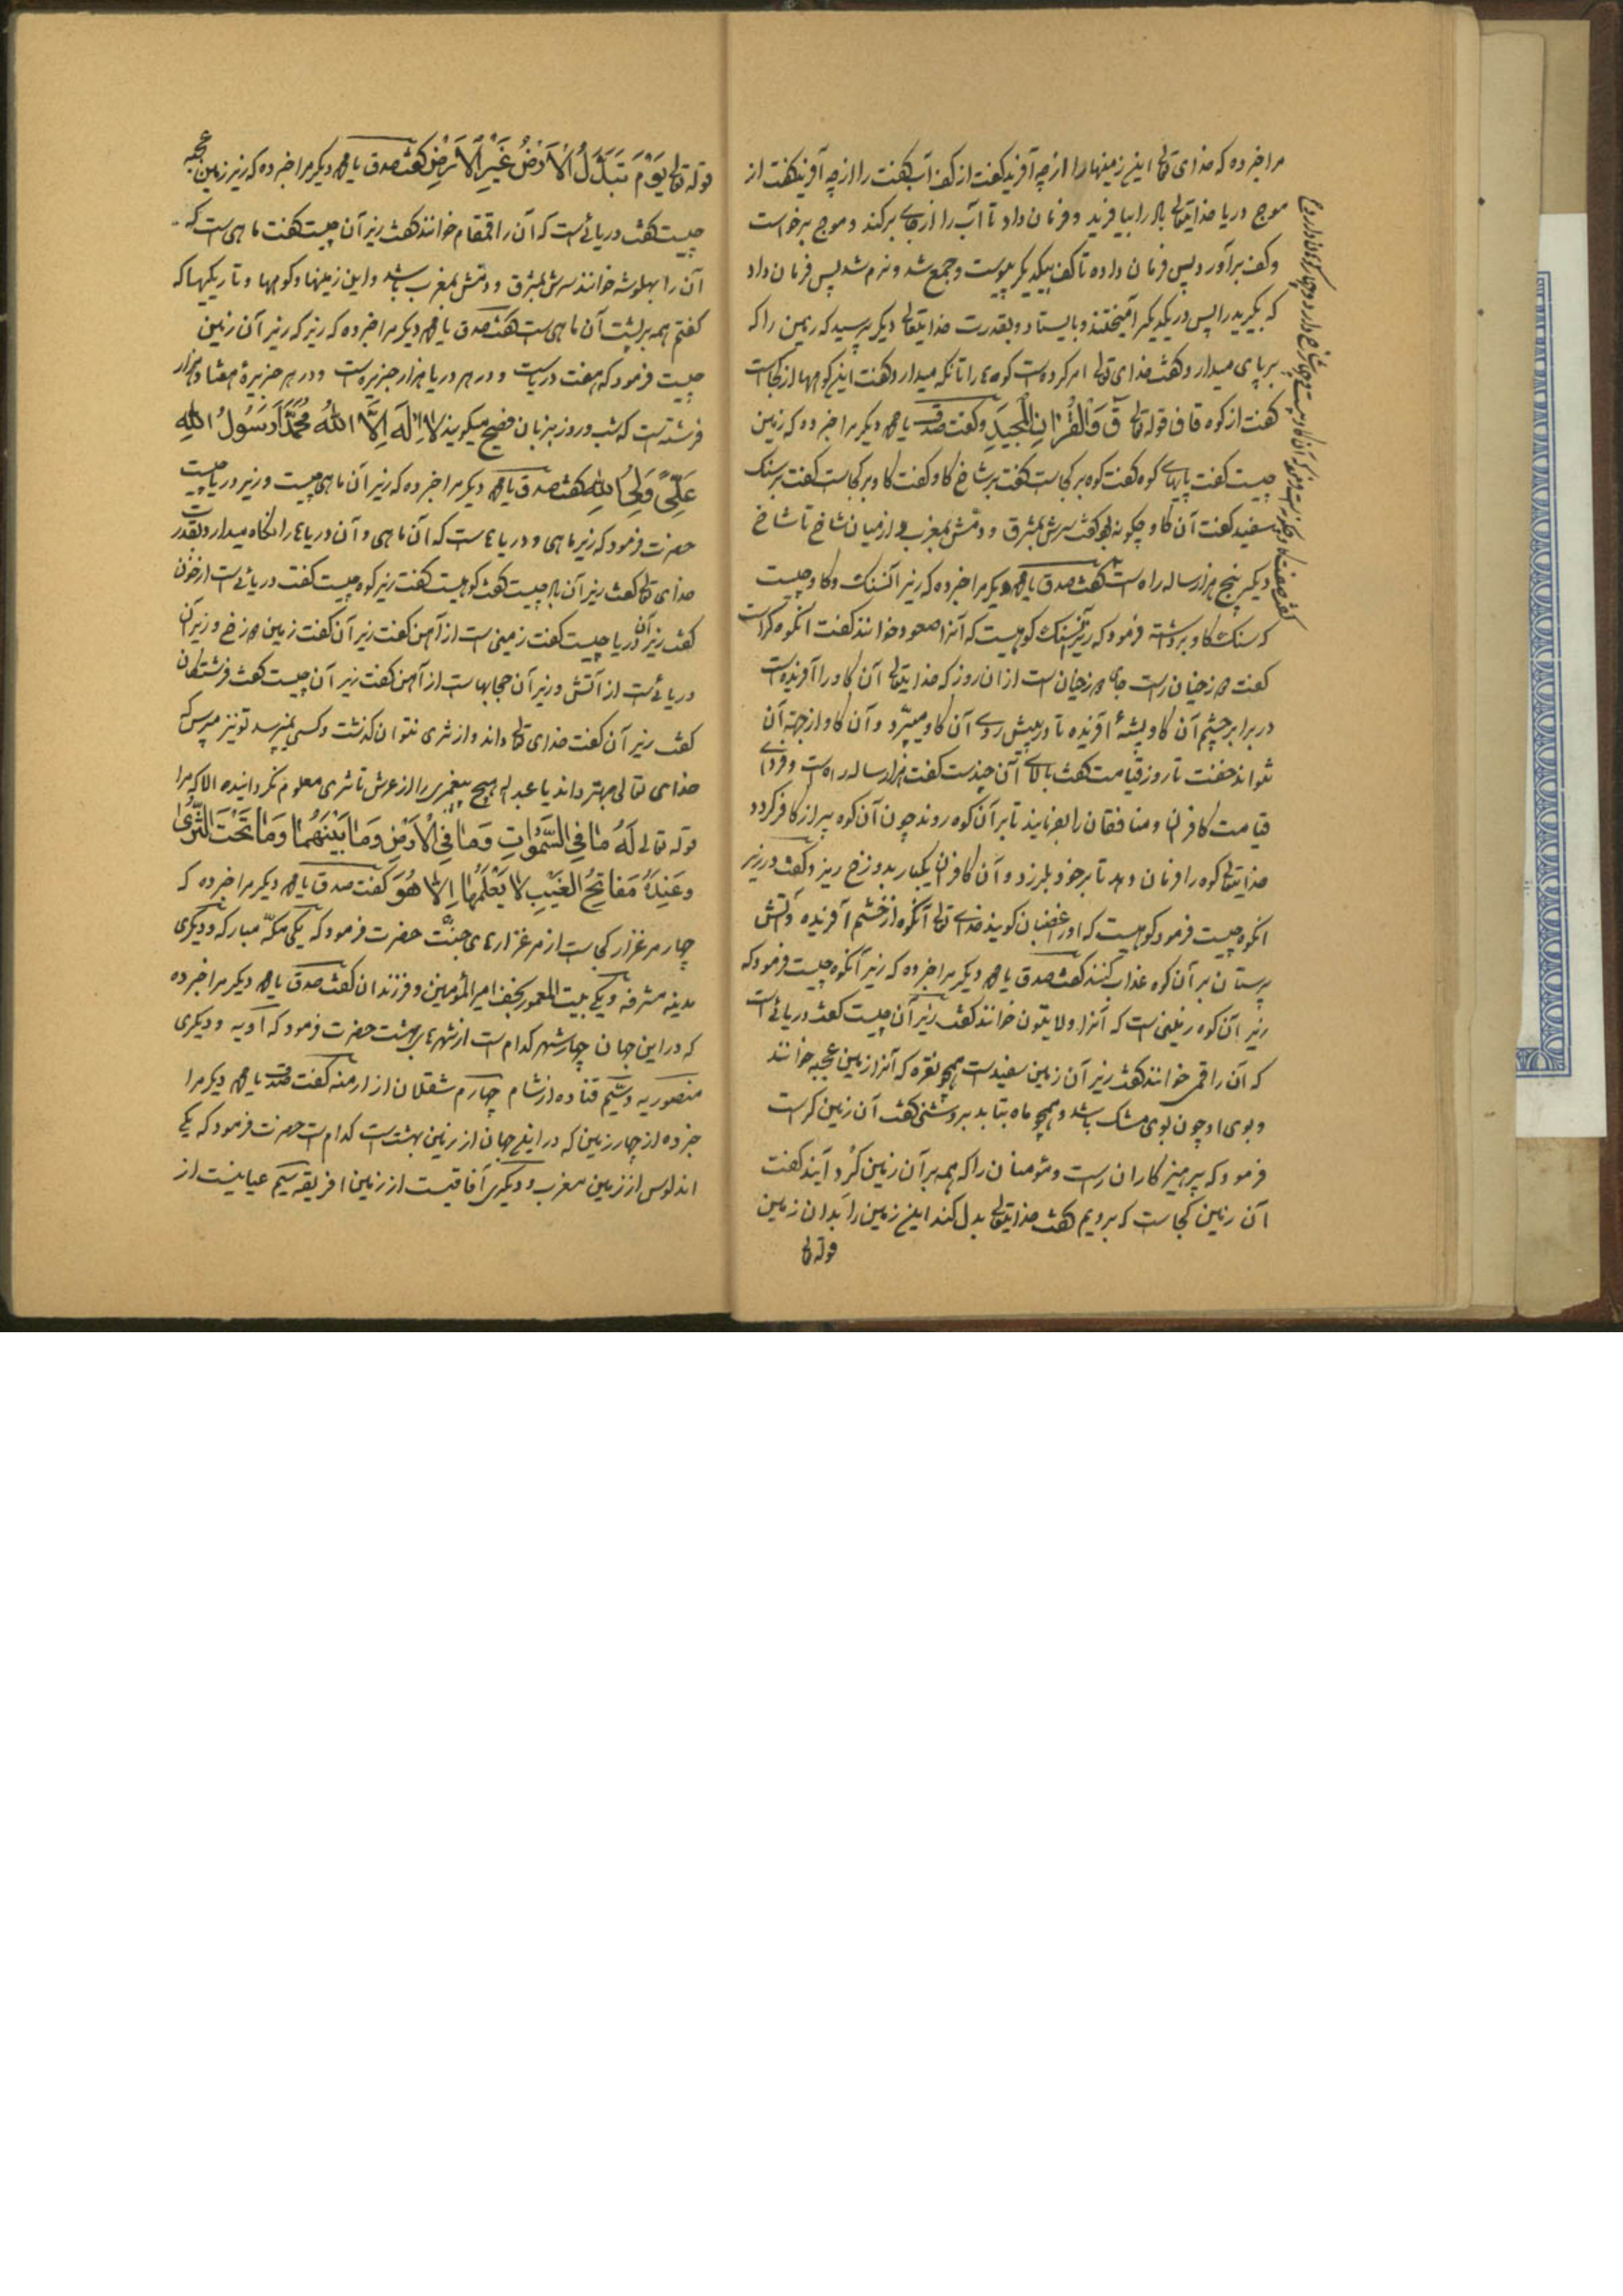 مرا خبر ده که خدای تعالی این زمینها را از چه آفرید گفت از کف آب گفت کف را از چه آفرید گفت از
موج دریا خدایتعالی باد را بیافرید و فرمان داد تا آب را از جای برکند و موج برخواست
و کف برآورد پس فرمان داده تا کف بیکدیگر پیوست و جمع شد و نرم شد پس فرمان داد
که بگیرید را پس در یکدیگر آمیختند و بایستاد و بقدرت خدایتعالی دیگر پرسید که زمین را که
برپای میدارد گفت خدای تعالی امر کرده است کوه ها را تا نگه میدارد گفت این کوهها از کجاست
گفت از کوه قاف قوله تعالی ق وَالْقُرْآنِ الْمَجِیدِ و گفت صدقت یا محمد دیگر مرا خبر ده که زمین
چیست گفت پایهای کوه گفت کوه بر کجاست گفت بر شاخ گاو گفت گاو بر کجاست گفت بر سنگ
سفید گفت آن گاو چگونه بود گفت سرش بمشرق و دمش بمغرب و از میان شاخ تا شاخ
دیگر پنج هزار ساله راه است گفت صدقت یا محمد دیگر مرا خبر ده که زیر آن سنگ و گاو چیست
که سنگ گاو برداشته فرمود که زیر سنگ کوهیست که آنرا صعود خوانند گفت آنکوه کراست
گفت دوزخیان راست جای دوزخیان است از ان روز که خدایتعالی آن گاو را آفریده است
در برابر چشم آن گاو پشهٔ آفریده تا در پیش روی آن گاو میپرد و آن گاو از جهة آن
نتواند خفت تا روز قیامت گفت بالای آن چندست گفت هزار ساله راه است و فردای
قیامت کافران و منافقان را بفرمایند تا بر آن کوه روند چون آن کوه پر از کافر گردد
خدایتعالی کوه را فرمان دهد تا بر خود بلرزد و آن کافران یکبار بدوزخ ریزد گفت در زیر
انکوه چیست فرمود کوهیست که او را غضبان گویند خدای تعالی آنکوه از خشم آفریده و آتش
پرستان بر آن کوه عذاب کنند گفت صدقت یا محمد دیگر مرا خبر ده که زیر آنکوه چیست فرمود که
زیر آن کوه زمینی است که آنرا ولایتون خوانند گفت زیر آن چیست گفت دریائیست
که آن را قمی خوانند گفت زیر آن زمین سفیدست همچو نقره که آنرا زمین عجیبه خوانند
و بوی او چون بوی مشک باشد و همچو ماه بتابد بروشنی گفت آن زمین کراست
فرمود که پرهیزکاران راست و مؤمنان را که همه بر آن زمین گرد آیند گفت
آن زمین کجاست که برویم گفت خدایتعالی بدل کند این زمین را بدان زمین
قوله تعالی
قوله تعالی یَوْمَ تُبَدَّلُ الْأَرْضُ غَیْرَ الْأَرْضِ گفت صدقت یا محمد دیگر مرا خبر ده که زیر زمین عجیبه
چیست گفت دریائیست که آن را قمقام خوانند گفت زیر آن چیست گفت ماهی است که
آن را بهلوشه خوانند سرش بمشرق و دمش بمغرب باشد و این زمینها و کوهها و تاریکیها که
گفتم همه بر پشت آن ماهی است گفت صدقت یا محمد دیگر مرا خبر ده که زیر که زیر آن زمین
چیست فرمود که هفت دریاست و در هر دریا هزار جزیره است و در هر جزیرهٔ هفتاد هزار
فرشته است که شب و روز بزبان فصیح میگویند لَا إِلَهَ إِلَّا اللهُ مُحَمَّدٌ رَسُولُ اللهِ
عَلِیٌّ وَلِیُّ اللهِ گفت صدقت یا محمد دیگر مرا خبر ده که زیر آن ماهی چیست و زیر دریا چیست
حضرت فرمود که زیر ماهی و دریا باد است که آن ماهی و آن دریاها را نگاه میدارد بقدرت
خدای تعالی گفت زیر آن باد چیست گفت کوهیست گفت زیر کوه چیست گفت دریائیست از خون
گفت زیر آن دریا چیست گفت زمینی است از آهن گفت زیر آن گفت زمین دوزخ و زیر آن
دریائیست از آتش و زیر آن حجابهاست از آهن گفت زیر آن چیست گفت فرشتگان
گفت زیر آن گفت خدای تعالی داند و از ثری نتوان گذشت و کسی نمیرسد تو نیز مپرس که
خدای تعالی بهتر داند یا عبد الله هیچ پیغمبری را از عرش تا ثری معلوم نگردانیده الا که مرا
قوله تعالی لَهُ مَا فِی السَّمَوَاتِ وَمَا فِی الْأَرْضِ وَمَا بَیْنَهُمَا وَمَا تَحْتَ الثَّرَی
وَعِنْدَهُ مَفَاتِیحُ الْغَیْبِ لَا یَعْلَمُهَا إِلَّا هُوَ گفت صدقت یا محمد دیگر مرا خبر ده که
چهار مرغزار کجاست از مرغزارهای جنت حضرت فرمود که یکی مکهٔ مبارکه و دیگری
مدینه مشرفه و یکی بیت المعمور نجف امیر المؤمنین و فرزندان گفت صدقت یا محمد دیگر مرا خبر ده
که در این جهان چهار شهر کدام است از شهرهای بهشت حضرت فرمود که آدیه و دیگری
منصوریه و سیم قتاده از شام چهارم شقلان از ارمنه گفت صدقت یا محمد دیگر مرا
خبر ده از چهار زمین که در این جهان از زمین بهشت است کدام است حضرت فرمود که یکی
اندلوس از زمین مغرب و دیگری آفاقیست از زمین افریقه سیم عیانیست از